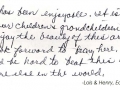 has been enjoyable, it is
our children's grandchildren
enjoy the beauty of this are
look forward to being here.
is hard to beat this
else in the world,
-Lois & Henry, Ed